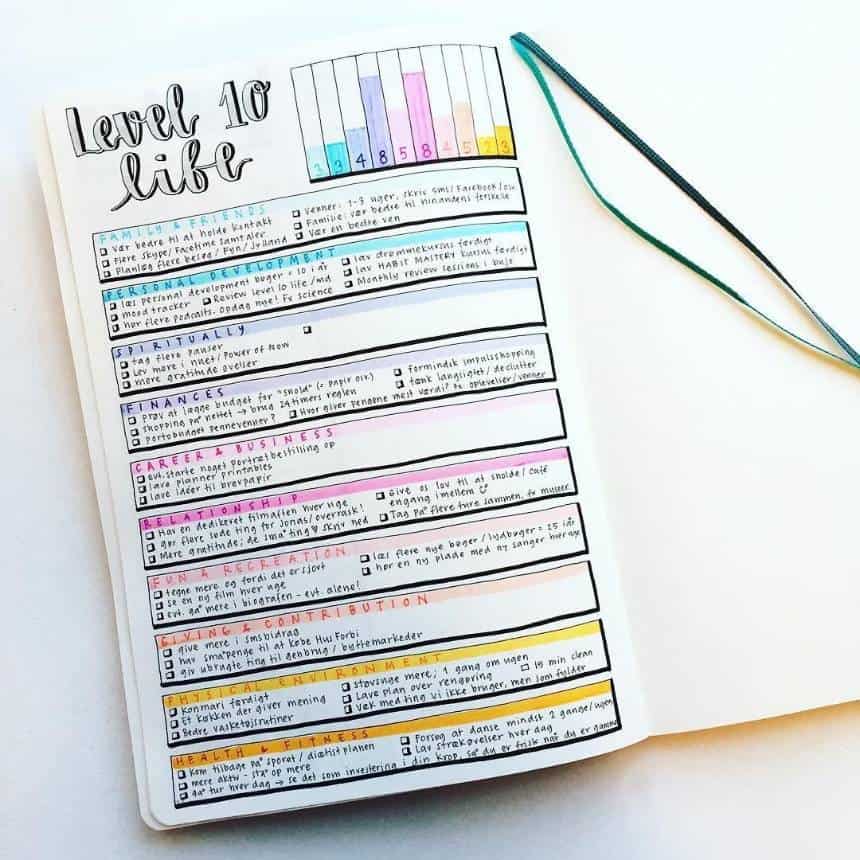 Level 10
life
3 3 4 8 5 8 4 5 2 3
FAMILY & FRIENDS
Vær bedre til at holde kontakt
Flere Skype/Facetime samtaler
Planlæg flere besøg/Fyn/Jylland
Venner: 1-3 uger, skriv sms/Facebook/osv
Familie: Vær bedre til hinandens forskelle
Vær en bedre ven
PERSONAL DEVELOPMENT
læs personal development bøger = 10 i år
mood tracker Review level 10 life/md
hør flere podcasts. Opdag nye! Fx science
lav drømmekursus færdigt
lav HABIT MASTERY kursus færdigt
Monthly review sessions i bujo
SPIRITUALLY
tag flere pauser
Lev mere i nuet/Power of Now
mere gratitude øvelser
FINANCES
prøv at lægge budget for "snold" (+ papir osv.)
shopping på nettet → brug 24 timers reglen
portobudget pennevenner? Hvor giver pengene mest værdi? Fx oplevelser/venner
formindsk impulsshopping
tænk langsigtet/declutter
CAREER & BUSINESS
evt. starte noget portrætbestilling op
lave planner printables
lave idéer til brevpapir
RELATIONSHIP
Hav en dedikeret filmaften hver uge
gør flere søde ting for Jonas/overrask!
Mere gratitude; de små ting ♡ skriv ned
Give os lov til at snolde/café
engang i mellem
Tag på flere ture sammen, fx museer
FUN & RECREATION
tegne mere og fordi det er sjovt
se en ny film hver uge
evt. gå mere i biografen - evt. alene!
læs flere nye bøger/lydbøger = 25 i år
hør en ny plade med ny sanger hver uge
GIVING & CONTRIBUTION
give mere i smsbidrag
hav småpenge til at købe Hus Forbi
giv ubrugte ting til genbrug/byttemarkeder
PHYSICAL ENVIRONMENT
Konmari færdigt
Et køkken der giver mening
Bedre vasketøjsrutiner
støvsuge mere; 1 gang om ugen 15 min clean
Lave plan over rengøring
Væk med ting vi ikke bruger, men som fylder
HEALTH & FITNESS
Kom tilbage på sporet/diætist planen
mere aktiv - stå op mere
gå tur hver dag → se det som investering i din krop, så du er frisk når du er gammel
Forsøg at danse mindst 2 gange/ugen
Lav strækøvelser hver dag